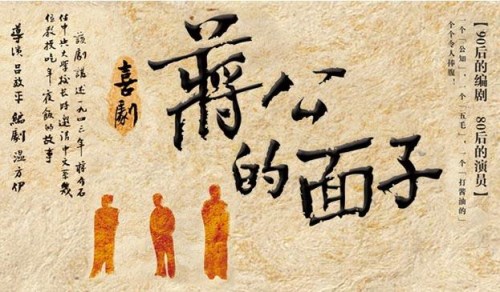 【90后的编剧 80后的演员】
一个「公知」,一个「五毛」,一个「打酱油的」
个个令人捧腹!
蔣公
的面子
喜劇
該劇講述一九四三年蔣介石
任中央大学校长时邀请中文系幾
位教授吃年夜飯的故事
導演 吕效平 編劇 温方伊